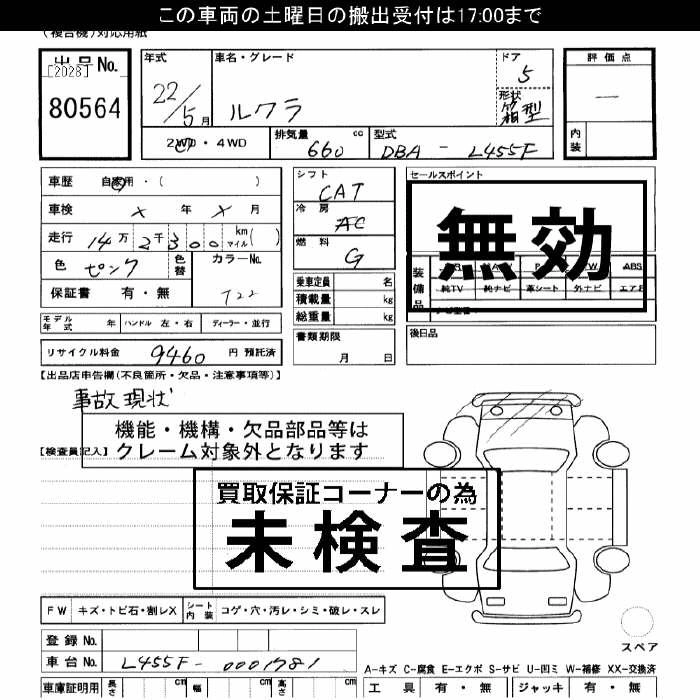 この車両の土曜日の搬出受付は17:00まで
(複合機)対応用紙
出品No.
[2028]
80564
年式
22/5月
車名・グレード
ルクラ
ドア
5
形状
箱型
評価点
—
内装
2WD・4WD
排気量 660 cc
型式 DBA - L455F
車歴 自家用・( )
車検 × 年 × 月
走行 14万2千300 km マイル( )
色 ピンク
色替
カラーNo.
T22
保証書 有・無
シフト
CAT
冷房
AC
燃料
G
乗車定員 名
積載量 kg
総重量 kg
セールスポイント
無効
装備品
ABS
純TV 純ナビ 革シート 外ナビ エアB
モデル年式 年 ハンドル 左・右 ディーラー・並行
書類期限
月 日
後日品
リサイクル料金 9460 円 預託済
【出品店申告欄(不良箇所・欠品・注意事項等)】
事故現状
機能・機構・欠品部品等は
クレーム対象外となります
【検査員記入】
買取保証コーナーの為
未検査
FW キズ・トビ石・割レX シート内装 コゲ・穴・汚レ・シミ・破レ・スレ
登録No.
車台No. L455F-0001781
スペア
A-キズ C-腐食 E-エクボ S-サビ U-凹ミ W-補修 XX-交換済
車庫証明用 長さ cm 幅 cm 高さ cm
工具 有・無 ジャッキ 有・無